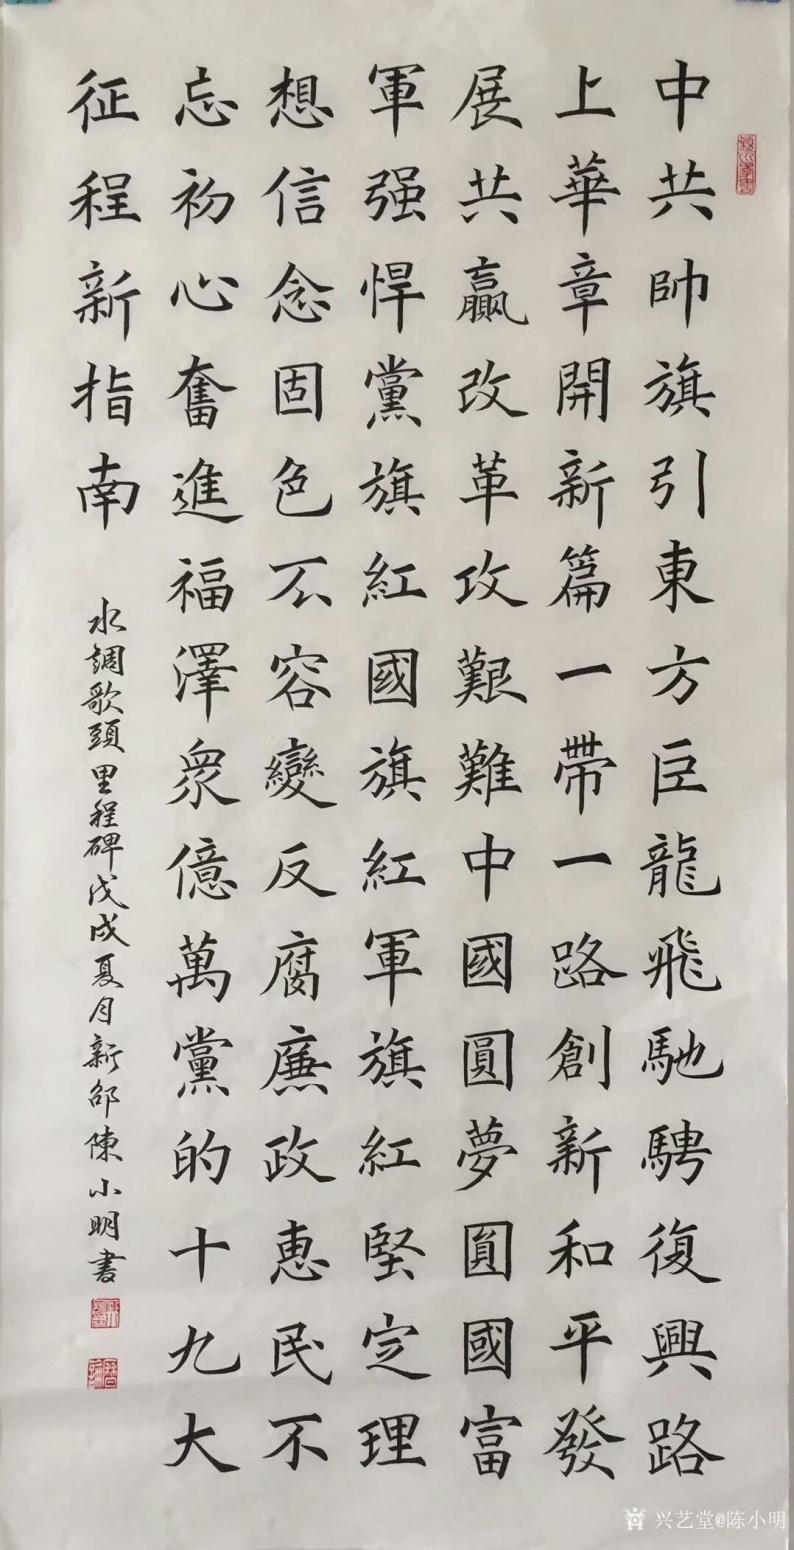 中共帥旗引東方巨龍飛馳騁復興路
上華章開新篇一帶一路創新和平發
展共贏改革攻艱難中國圓夢圓國富
軍强悍黨旗紅國旗紅軍旗紅堅定理
想信念固色不容變反腐廉政惠民不
忘初心奮進福澤衆億萬黨的十九大
征程新指南
水調歌頭里程碑戊戌夏月新邵陳小明書
兴艺堂@陈小明